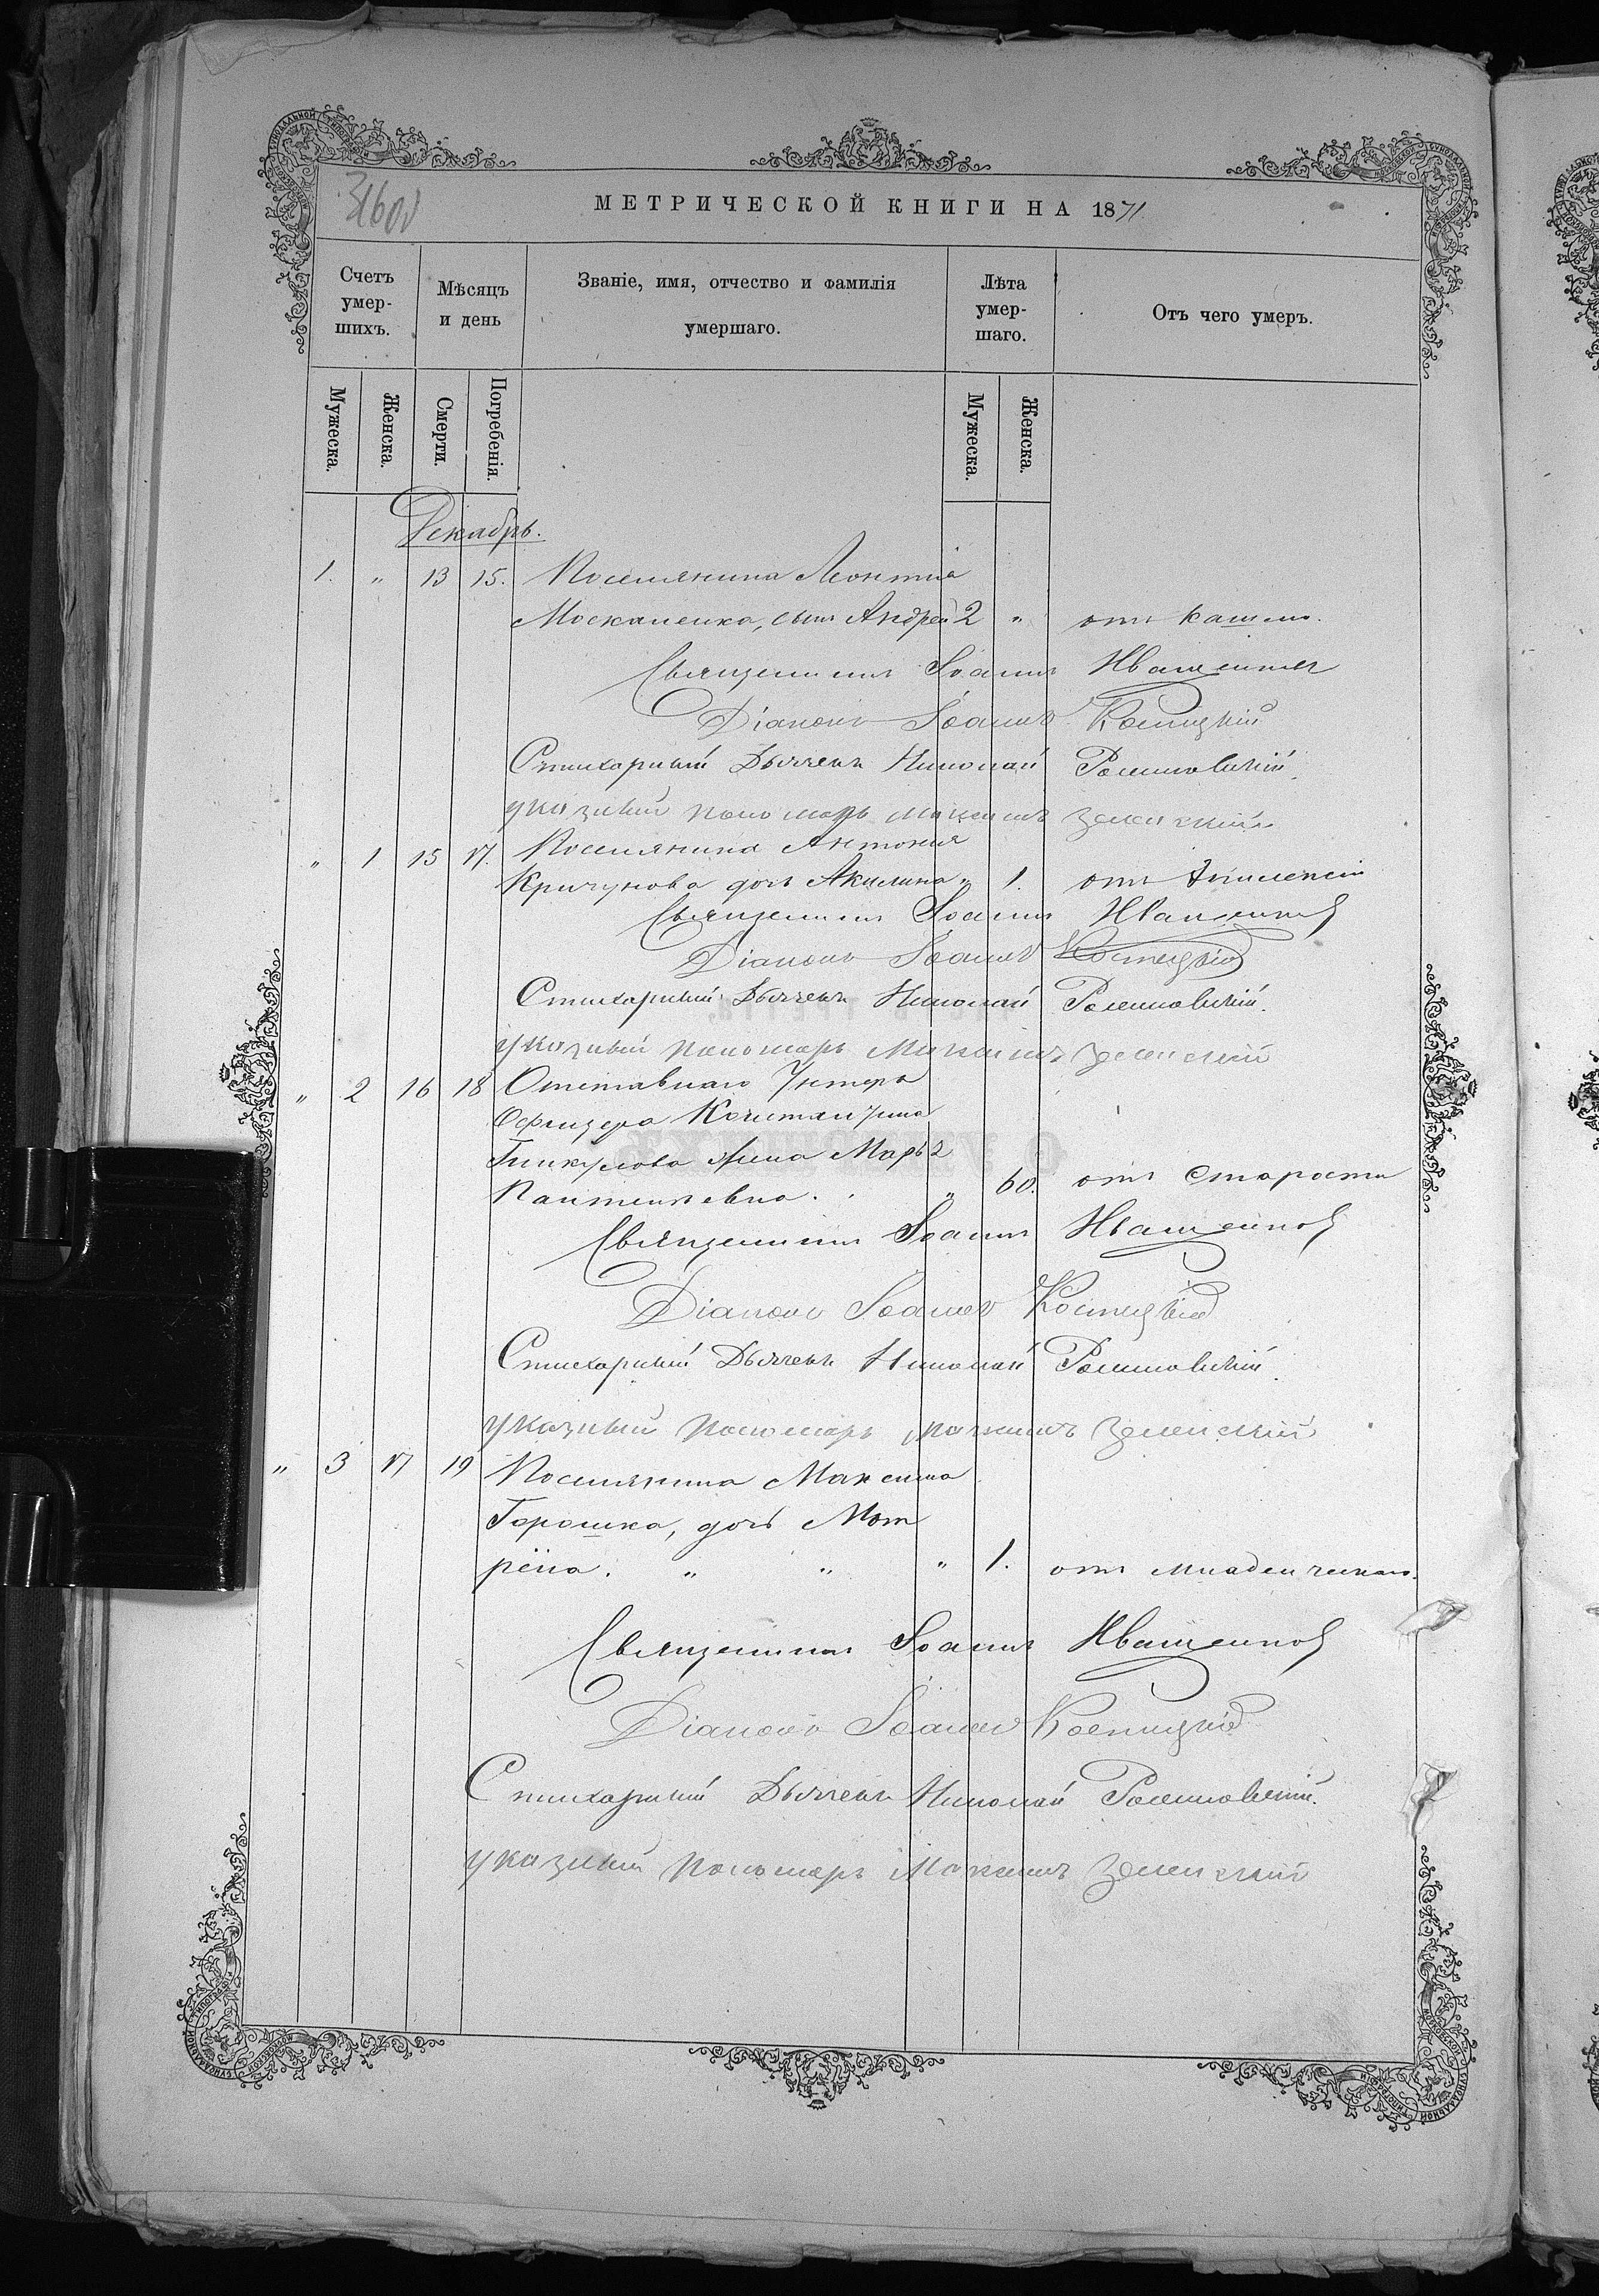 МЕТРИЧЕСКОЙ КНИГИ НА 1871
Счетъ умер-шихъ.
Мѣсяцъ и день
Званіе, имя, отчество и фамилія умершаго.
Лѣта умер-шаго.
Отъ чего умеръ.
Мужеска. Женска. Смерти. Погребенія. Мужеска. Женска.
Декабрь.
1. " 13 15. Поселянина Леонтія
Москаленка, сынъ Андрей 2 " отъ кашля.
Священникъ Іоаннъ Иващенковъ
Діаконъ Іоаннъ Костецкій
Стихарный Дьячекъ Николай
указный пономарь Максимъ Зеленскій
" 1 15 17. Поселянина Антонія
Кричунова дочь Акилина " 1. отъ
Священникъ Іоаннъ Иващенковъ
Діаконъ Іоаннъ Костецкій
Стихарный Дьячекъ Николай
указный пономарь Максимъ Зеленскій
" 2 16 18 Отставнаго Унтеръ
Офицера Константина
жена Марѳа
Пантелеевна. " 60. отъ старости
Священникъ Іоаннъ Иващенковъ
Діаконъ Іоаннъ Костецкій
Стихарный Дьячекъ Николай
указный пономарь Максимъ Зеленскій
" 3 17 19 Поселянина Максима
Горошка, дочь Мот
рёна. " " " 1. отъ младенческаго.
Священникъ Іоаннъ Иващенковъ
Діаконъ Іоаннъ Костецкій
Стихарный Дьячекъ Николай
указный пономарь Максимъ Зеленскій